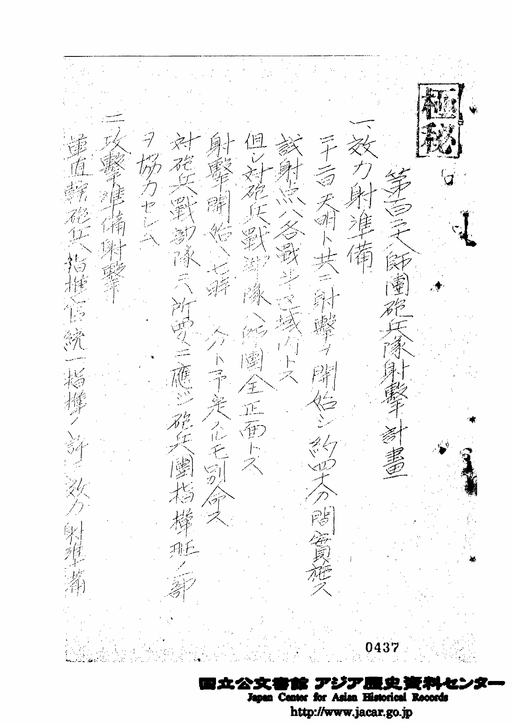 極秘
第百三八師團砲兵隊射擊計畫
一、效力射準備
二十二日天明ト共ニ射擊ヲ開始シ約四十分間實施ス
試射点ハ各戰斗区域内トス
但シ対砲兵戰部隊ハ師團全正面トス
射擊開始ハ七時 分ト予定スルモ別命ス
対砲兵戰部隊ニハ所要ニ應ジ砲兵團指揮班ノ一部
ヲ協力セシム
二、攻擊準備射擊
直轄砲兵ハ指揮官統一指揮ノ許ニ效力射準備
0437
国立公文書館 アジア歴史資料センター
Japan Center for Asian Historical Records
http://www.jacar.go.jp